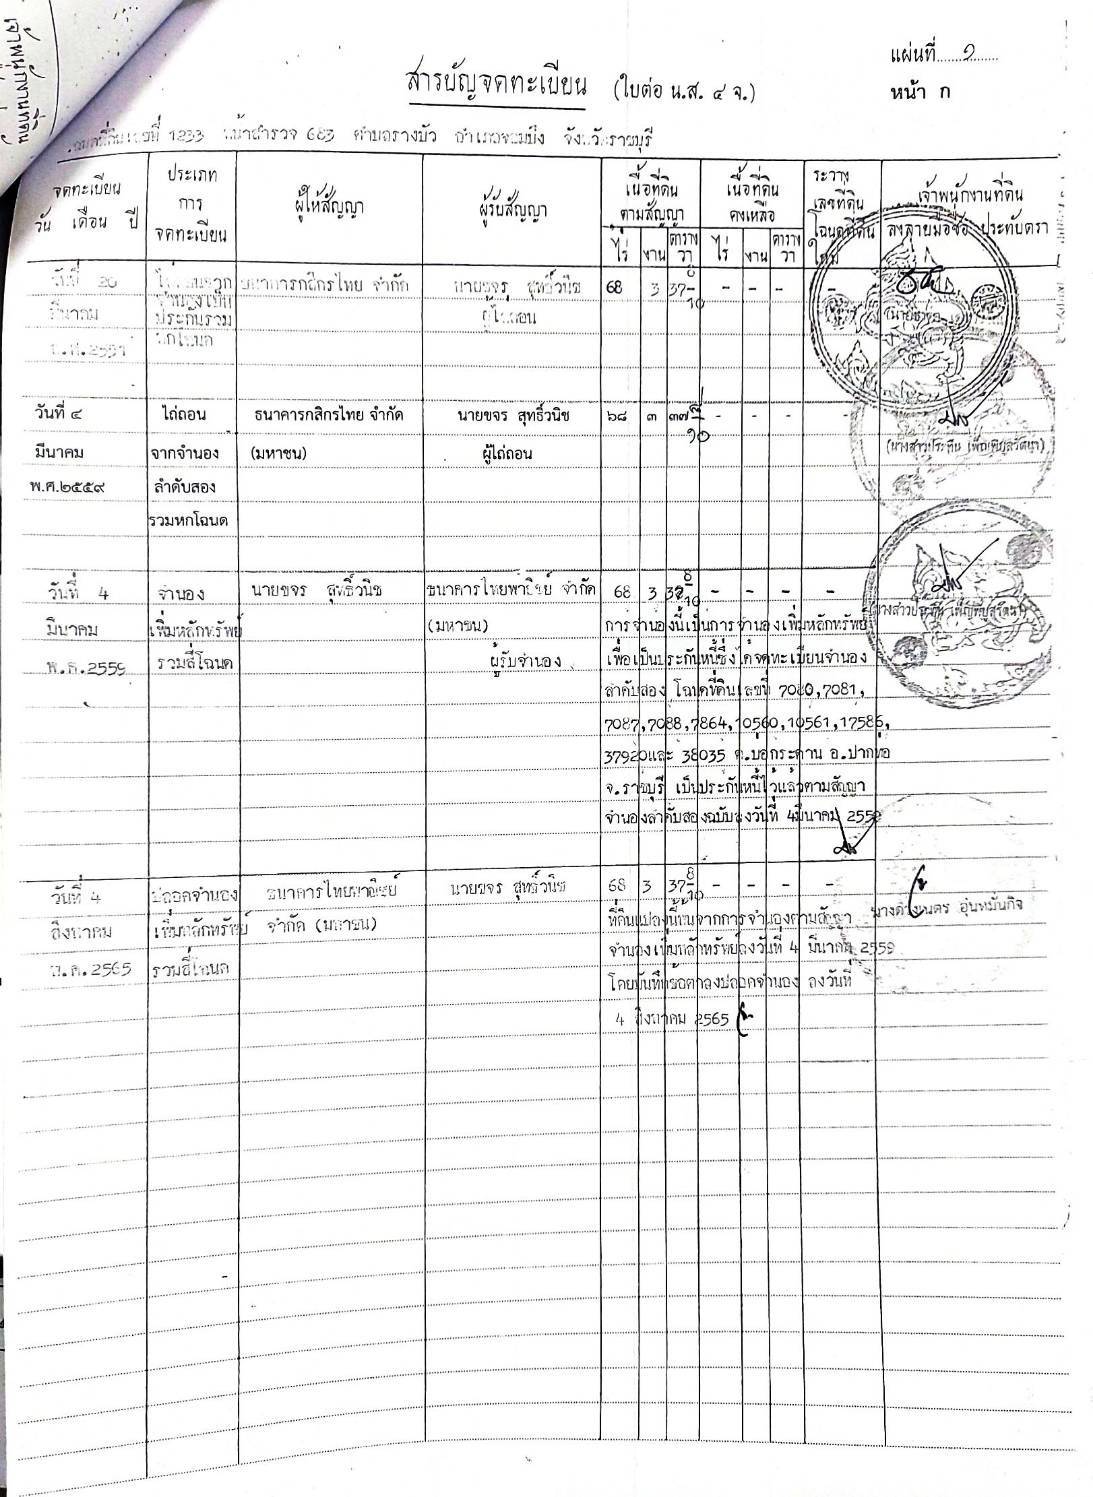 แผ่นที่ ๒
สารบัญจดทะเบียน (ใบต่อ น.ส. ๔ จ.)
หน้า ก
เลขที่ 1233 หน้าสำรวจ 683 ตำบลรางบัว อำเภอจอมบึง จังหวัดราชบุรี
จดทะเบียน วัน เดือน ปี
ประเภท การ จดทะเบียน
ผู้ให้สัญญา
ผู้รับสัญญา
เนื้อที่ดิน ตามสัญญา
ไร่ งาน ตาราง วา
เนื้อที่ดิน คงเหลือ
ไร่ งาน ตาราง วา
ระวาง เลขที่ดิน โฉนดที่ดิน ใหม่
เจ้าพนักงานที่ดิน ลงลายมือชื่อ ประทับตรา
ธนาคารกสิกรไทย จำกัด นายขจร สุทธิ์วนิช 68 3 37 8/10 - - - -
มีนาคม ประกันรวม ผู้ไถ่ถอน
วันที่ ๔ ไถ่ถอน ธนาคารกสิกรไทย จำกัด นายขจร สุทธิ์วนิช ๖๘ ๓ ๓๗ ๘/๑๐ - - - -
มีนาคม จากจำนอง (มหาชน) ผู้ไถ่ถอน
พ.ศ.๒๕๕๙ ลำดับสอง
รวมหกโฉนด
วันที่ 4 จำนอง นายขจร สุทธิ์วนิช ธนาคารไทยพาณิชย์ จำกัด 68 3 37 8/10 - - - -
มีนาคม เพิ่มหลักทรัพย์ (มหาชน) การจำนองนี้เป็นการจำนองเพิ่มหลักทรัพย์
พ.ศ.2559 รวมสี่โฉนด ผู้รับจำนอง เพื่อเป็นประกันหนี้ซึ่งได้จดทะเบียนจำนอง
ลำดับสอง โฉนดที่ดินเลขที่ 7080,7081,
7087,7088,7864,10560,10561,17586,
37920และ 38035 ต.บ่อกระดาน อ.ปากท่อ
จ.ราชบุรี เป็นประกันหนี้ไว้แล้วตามสัญญา
จำนองลำดับสองฉบับลงวันที่ 4มีนาคม 2559
วันที่ 4 ปลอดจำนอง ธนาคารไทยพาณิชย์ นายขจร สุทธิ์วนิช 68 3 37 8/10 - - - -
สิงหาคม เพิ่มหลักทรัพย์ จำกัด (มหาชน) ที่ดินแปลงนี้พ้นจากการจำนองตามสัญญา
พ.ศ.2565 รวมสี่โฉนด จำนองเพิ่มหลักทรัพย์ลงวันที่ 4 มีนาคม 2559
โดยบันทึกข้อตกลงปลอดจำนอง ลงวันที่
4 สิงหาคม 2565